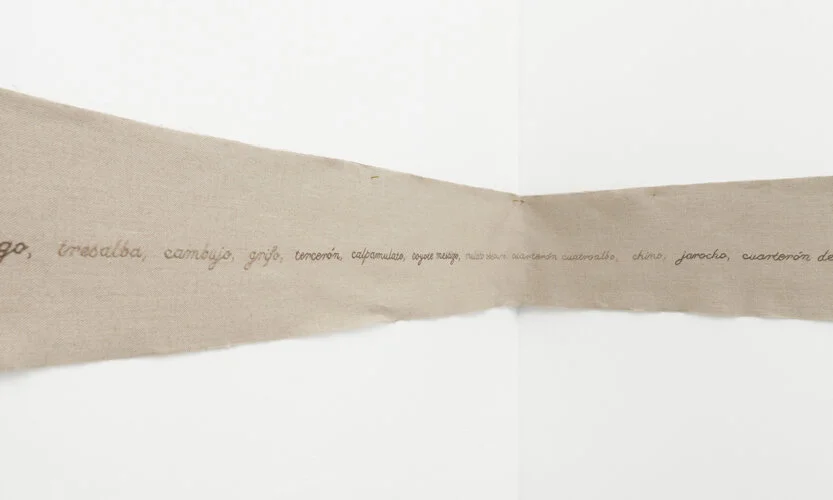 go, tresalba, cambujo, grifo, tercerón, calpamulato, coyote mestizo, cuarterón cuatroalbo, chino, jarocho, cuarterón de